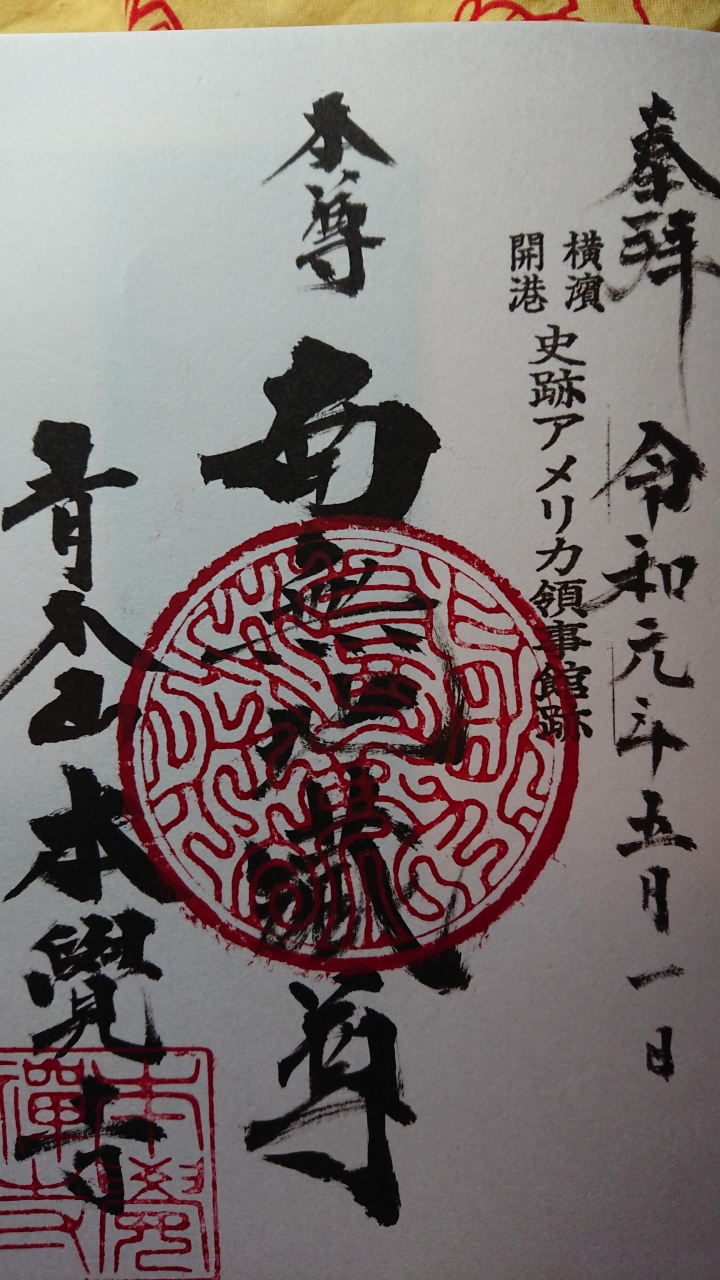 奉拝 令和元年五月一日
横濱
開港
史跡アメリカ領事館跡
本尊 南無地蔵尊
青木山 本覺寺
本覺
禪寺